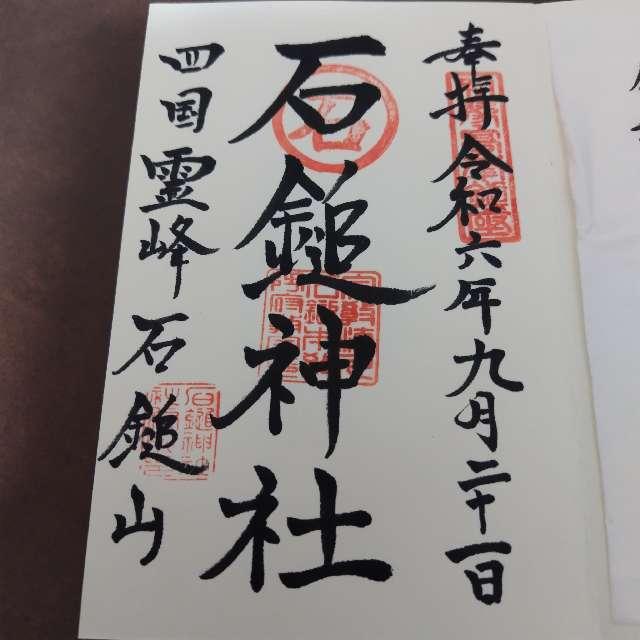 奉拝 令和六年九月二十一日
石鎚神社
四国霊峰石鎚山